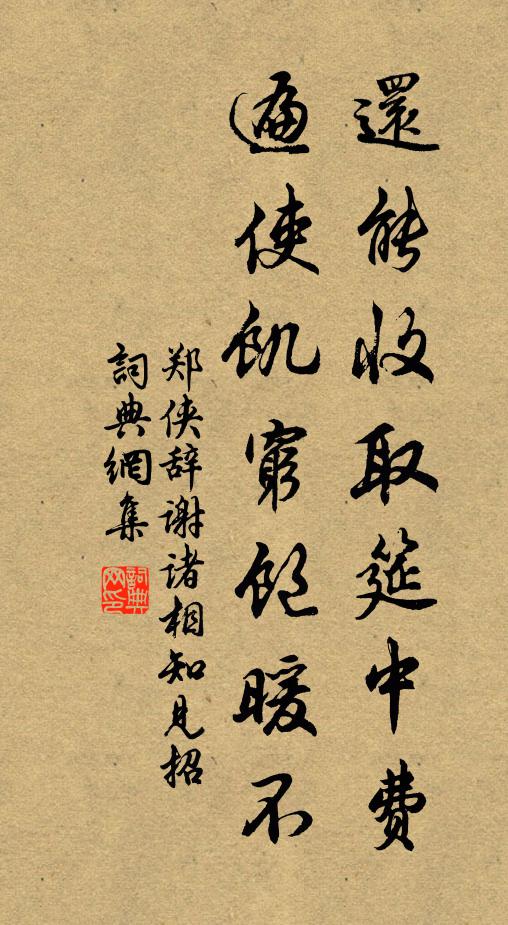 還能收取筵中費
遍使飢窮飽暖不
郑侠辞谢诸相知見招
詞典網集
詞典網印